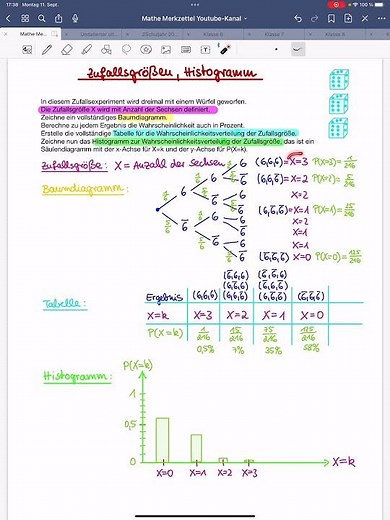 17:38 Montag 11. Sept.
100 %
Mathe Merkzettel Youtube-Kanal
Mathe Me...
Klasse 6
Klasse 7
Klasse 8
Zufallsgrößen, Histogramm
In diesem Zufallsexperiment wird dreimal mit einem Würfel geworfen.
Die Zufallsgröße X wird mit Anzahl der Sechsen definiert.
Zeichne ein vollständiges Baumdiagramm.
Berechne zu jedem Ergebnis die Wahrscheinlichkeit auch in Prozent.
Erstelle die vollständige Tabelle für die Wahrscheinlichkeitsverteilung der Zufallsgröße.
Zeichne nun das Histogramm zur Wahrscheinlichkeitsverteilung der Zufallsgröße, das ist ein
Säulendiagramm mit der x-Achse für X=k und der y-Achse für P(X=k).
Zufallsgröße: X = Anzahl der Sechsen
Baumdiagramm:
1/6 6 1/6 6 1/6 6 (6,6,6)=X=3 P(X=3)=1/216
5/6 6̅ (6,6,6̅)=X=2 P(X=2)=
X=2
(6,6̅,6̅)=X=1 P(X=1)=15/216
X=2
X=1
X=1
(6̅,6̅,6̅) X=0 P(X=0)=125/216
Tabelle:
Ergebnis (6,6,6) (6,6,6̅) (6̅,6̅,6̅)
X=k X=3 X=2 X=1 X=0
P(X=k) 1/216 15/216 75/216 125/216
0,5% 7% 35% 58%
Histogramm:
P(X=k)
1
0,5
0
X=0 X=1 X=2 X=3
X=k